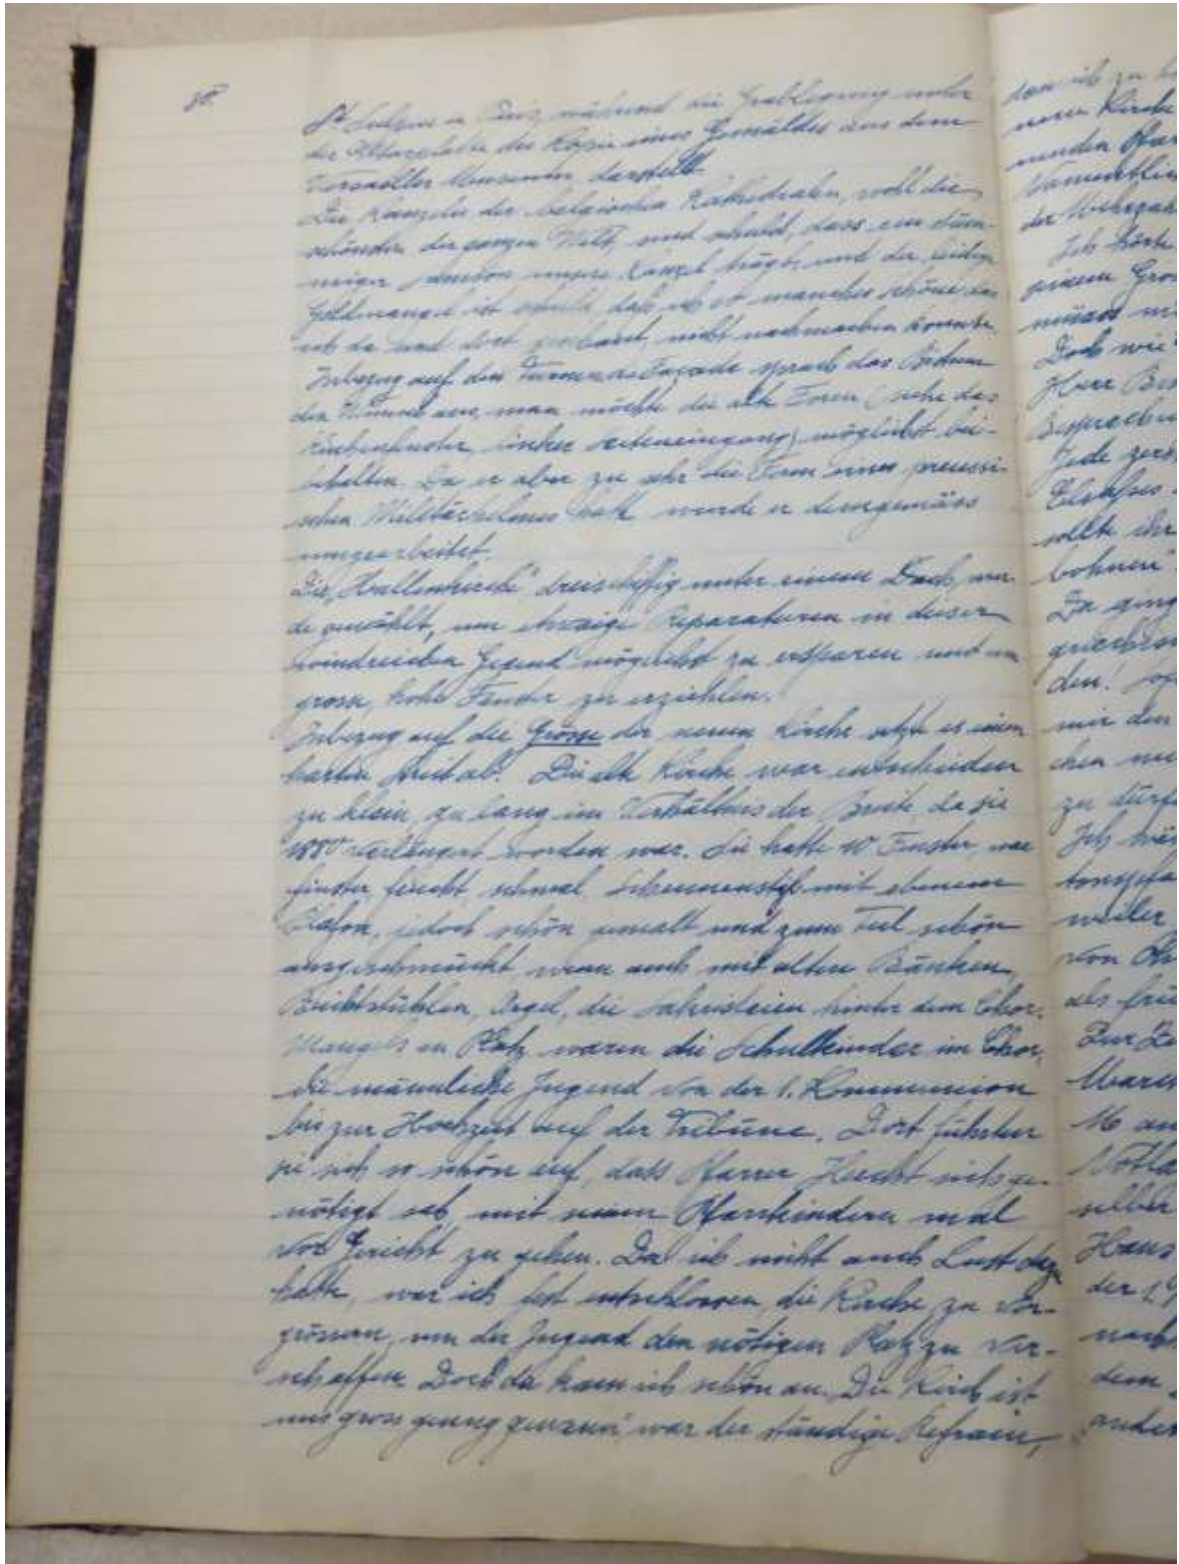 80.
St Sulpice in Paris, während die Grablegung unter
der Altarplatte die Kopie eines Gemäldes aus dem
Versailler Museum darstellt.
Die Kanzeln der belgischen Kathedralen, wohl die
schönsten der ganzen Welt, sind schuld, dass ein stäm-
miger Samson unsere Kanzel trägt, und der leidige
Geldmangel ist schuld, daß ich so manches schöne das
ich da und dort geschaut, nicht nachmachen konnte.
Inbezug auf den Turm u. die Façade sprach das Bistum
den Wunsch aus, man möchte die alte Form (siehe das
linker Seiteneingang) möglichst bei-
behalten. Da er aber zu sehr die Form eines preussi-
schen Militärhelmes hatte wurde er demgemäss
umgearbeitet.
Die "Hallenkirche" dreischiffig unter einem Dach, wur-
de gewählt, um etwaige Reparaturen in dieser
windreichen Gegend möglichst zu ersparen und um
grosse, hohe Fenster zu erziehlen.
Inbezug auf die Grösse der neuen Kirche setzte es einen
harten Streit ab. Die alte Kirche war entschieden
zu klein, zu lang im Verhältnis der Breite, da sie
1880 verlängert worden war. Sie hatte 10 Fenster, war
finster, feucht, schmal, Scheunenstil mit ebenem
Plafon, jedoch schön gemalt und zum Teil schön
ausgeschmückt, wenn auch mit alten Bänken,
Beichtstühlen, Orgel, die Sakristeien hinter dem Chor.
Mangels an Platz waren die Schulkinder im Chor,
die männliche Jugend von der 1. Kommunion
bis zur Hochzeit auf der Tribüne. Dort führten
sie sich so schön auf, dass Pfarrer Hecht sich ge-
nötigt sah, mit seinen Pfarrkindern mal
vor Gericht zu gehen. Da ich nicht auch Lust dazu
hatte, war ich fest entschlossen, die Kirche zu ver-
grössern, um der Jugend den nötigen Platz zu ver-
schaffen. Doch da kam ich schön an. Die Kirch ist
uns gross genug gewenn" war der ständige Refrain,